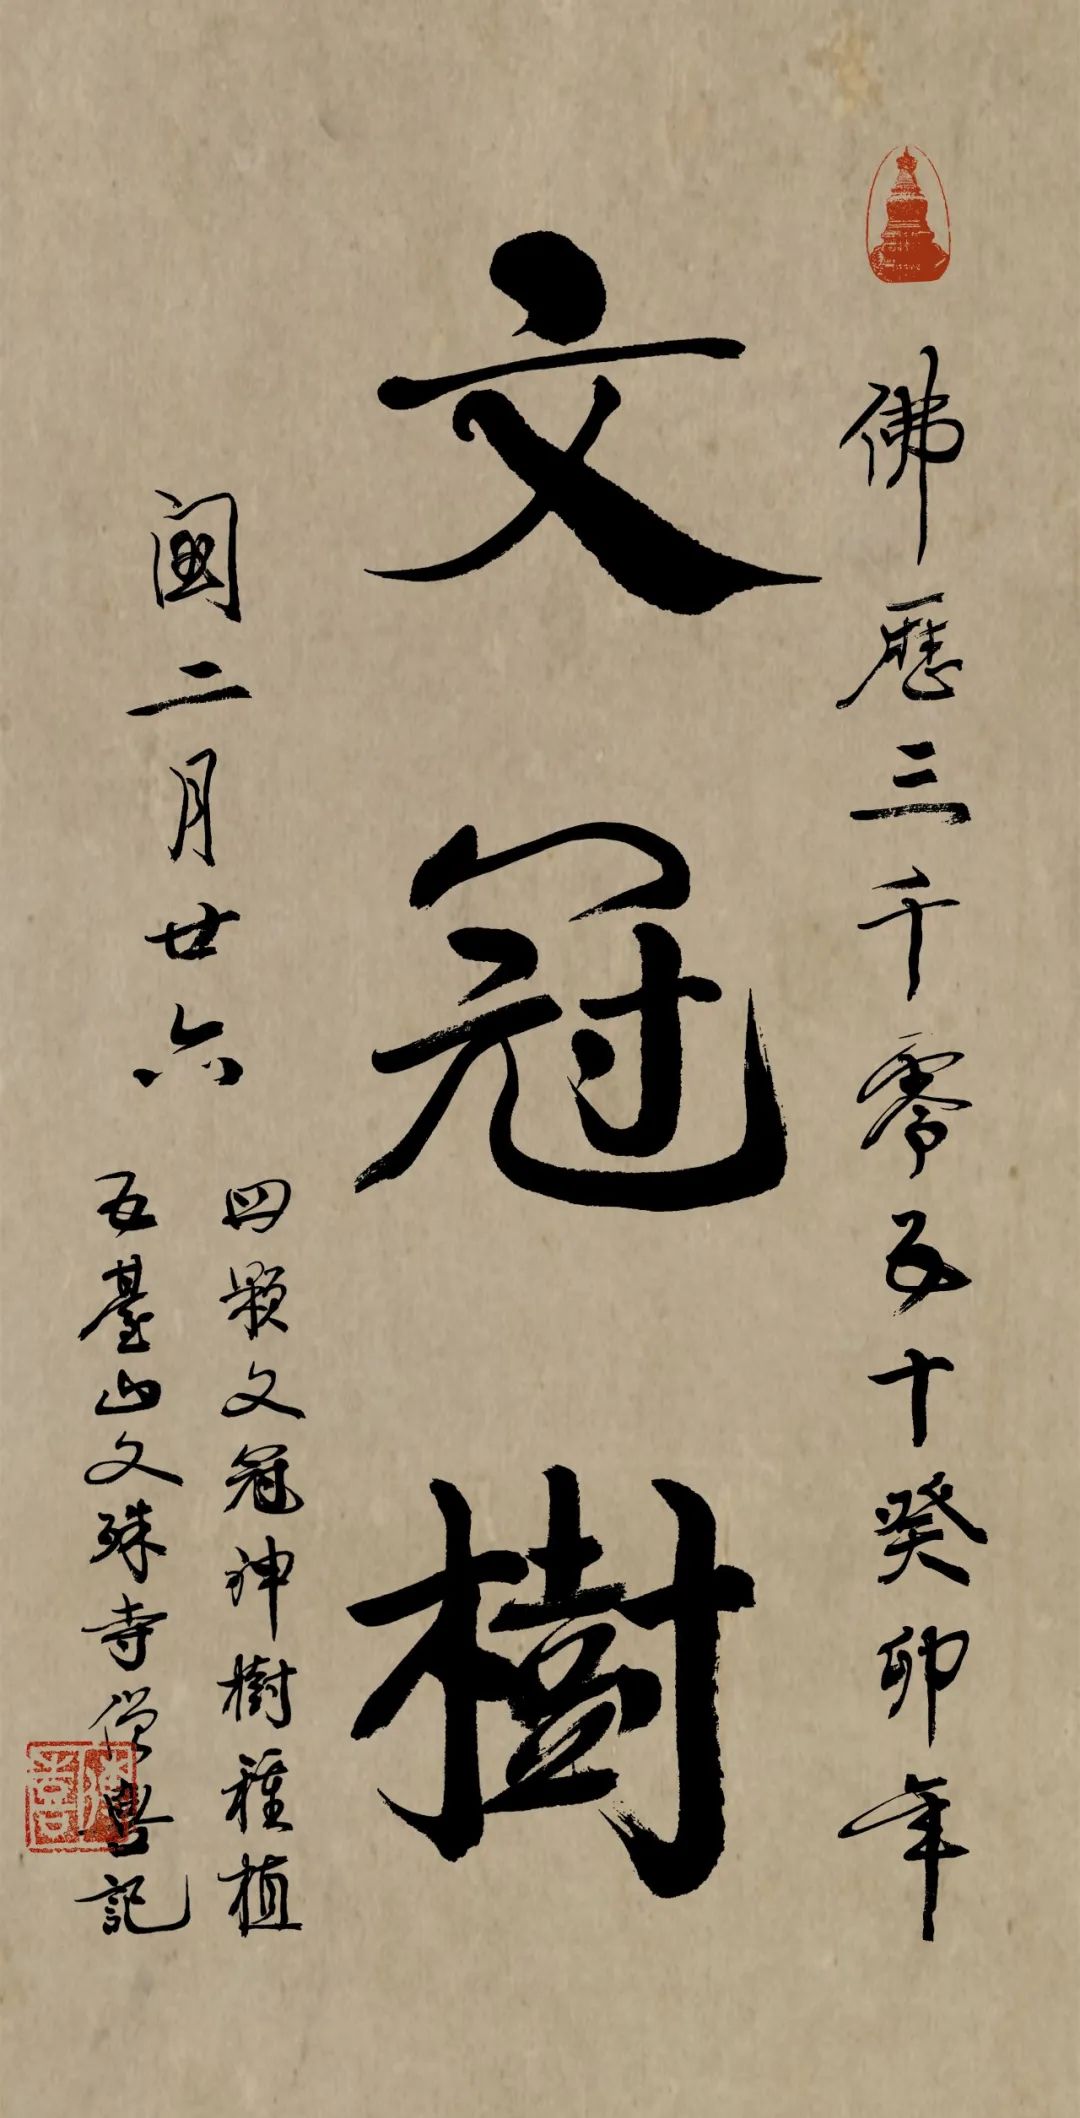 佛歷三千零五十癸卯年
文冠樹
閏二月廿六
四顆文冠神樹種植
五臺山文殊寺僧記